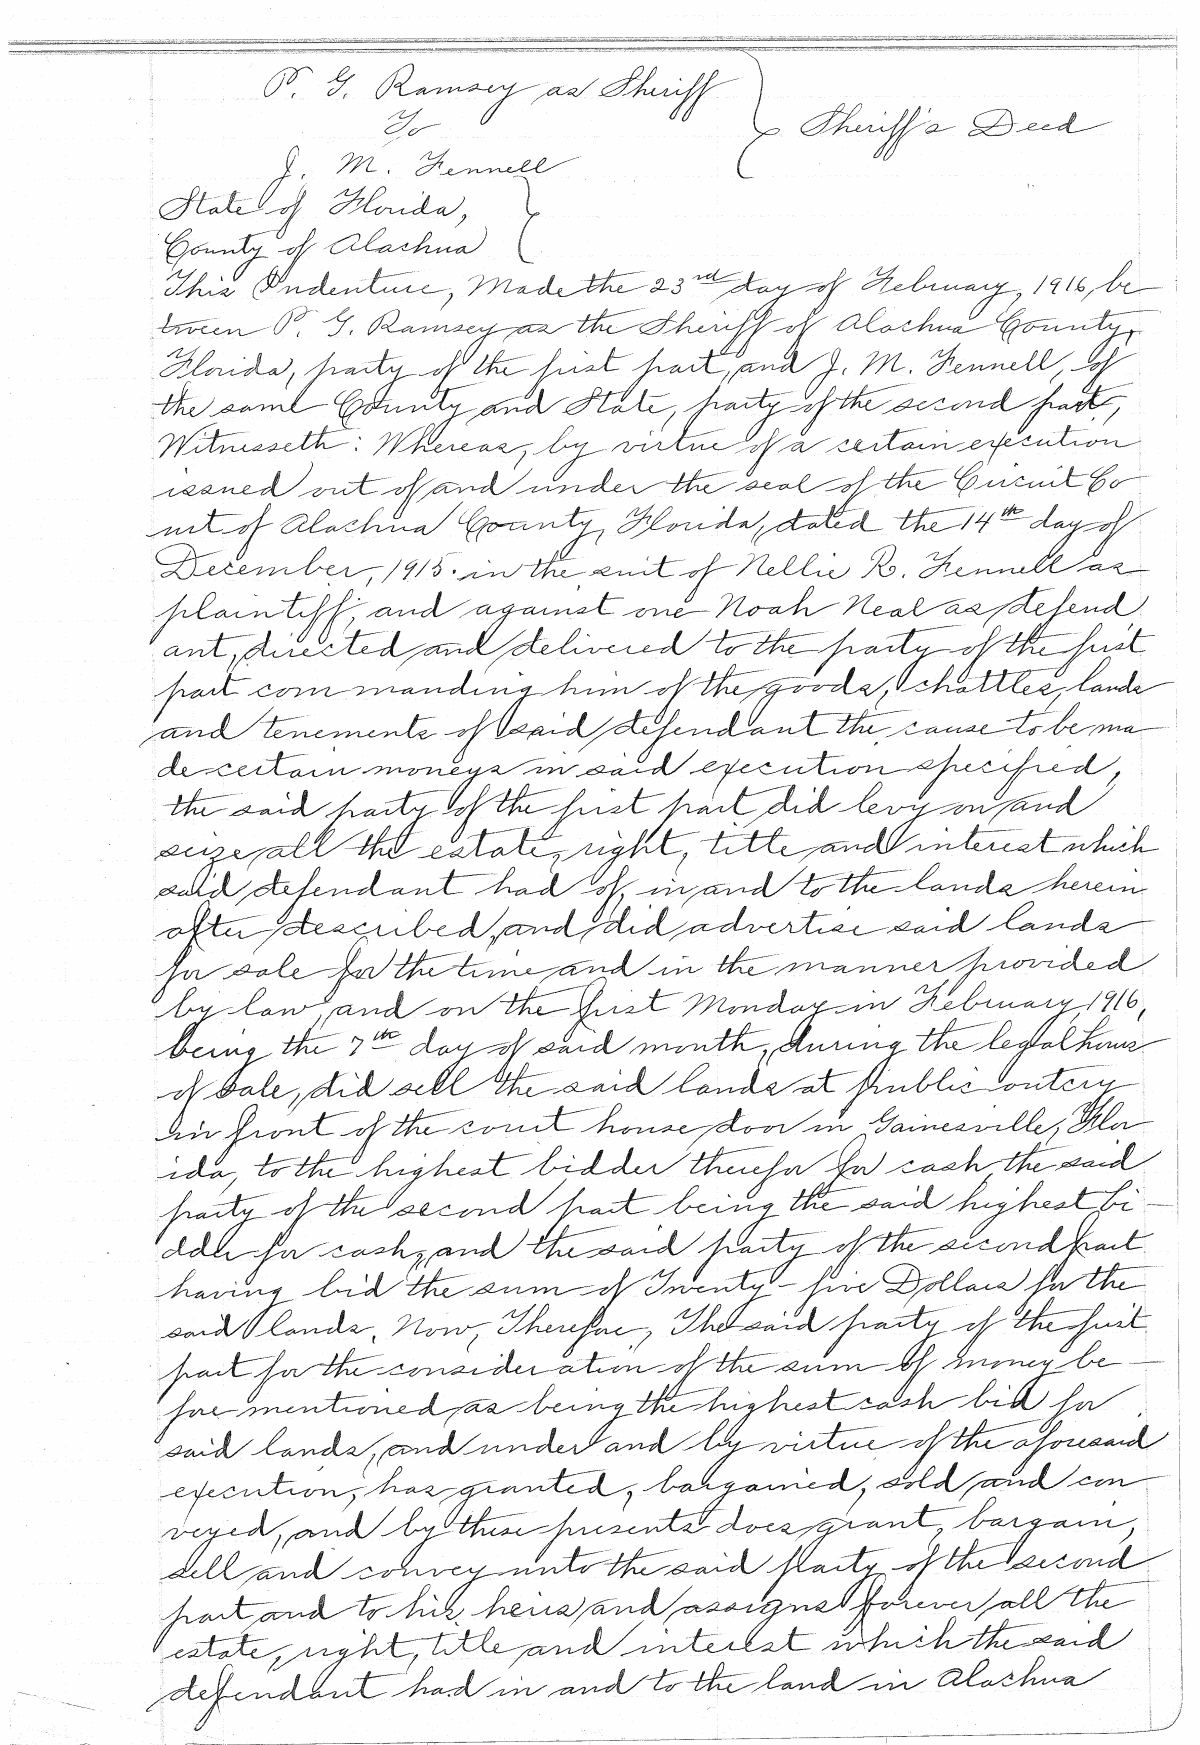 P. G. Ramsey as Sheriff
To
Sheriff's Deed
J. M. Fennell
State of Florida,
County of Alachua
This Indenture, Made the 23rd day of February, 1916, be
tween P. G. Ramsey as the Sheriff of Alachua County,
Florida, party of the first part, and J. M. Fennell, of
the same County and State, party of the second part,
Witnesseth: Whereas, by virtue of a certain execution
issued out of and under the seal of the Circuit Co
urt of Alachua County, Florida, dated the 14th day of
December, 1915. in the suit of Nellie R. Fennell as
plaintiff, and against one Noah Neal as defend
ant, directed and delivered to the party of the first
part com manding him of the goods, chattles, lands
and tenements of said defendant the, cause to be ma
de certain moneys in said execution specified,
the said party of the first part did levy on and
seize all the estate, right, title and interest which
said defendant had of, in and to the lands herein
after described, and did advertise said lands
for sale for the time and in the manner provided
by law, and on the first Monday in February, 1916,
being the 7th day of said month, during the legal hours
of sale, did sell the said lands at public outcry
in front of the court house door in Gainesville, Flor
ida, to the highest bidder therefor for cash, the said
party of the second part being the said highest bi-
dder for cash, and the said party of the second part
having bid the sum of Twenty-five Dollars for the
said lands, Now, Therefore, The said party of the first
part for the consideration of the sum of money be-
fore mentioned as being the highest cash bid for
said lands, and under and by virtue of the aforesaid
execution, has granted, bargained, sold and con
veyed, and by these presents does grant, bargain,
sell and convey unto the said party of the second
part and to his heirs and assigns forever all the
estate, right, title and interest which the said
defendant had in and to the land in Alachua